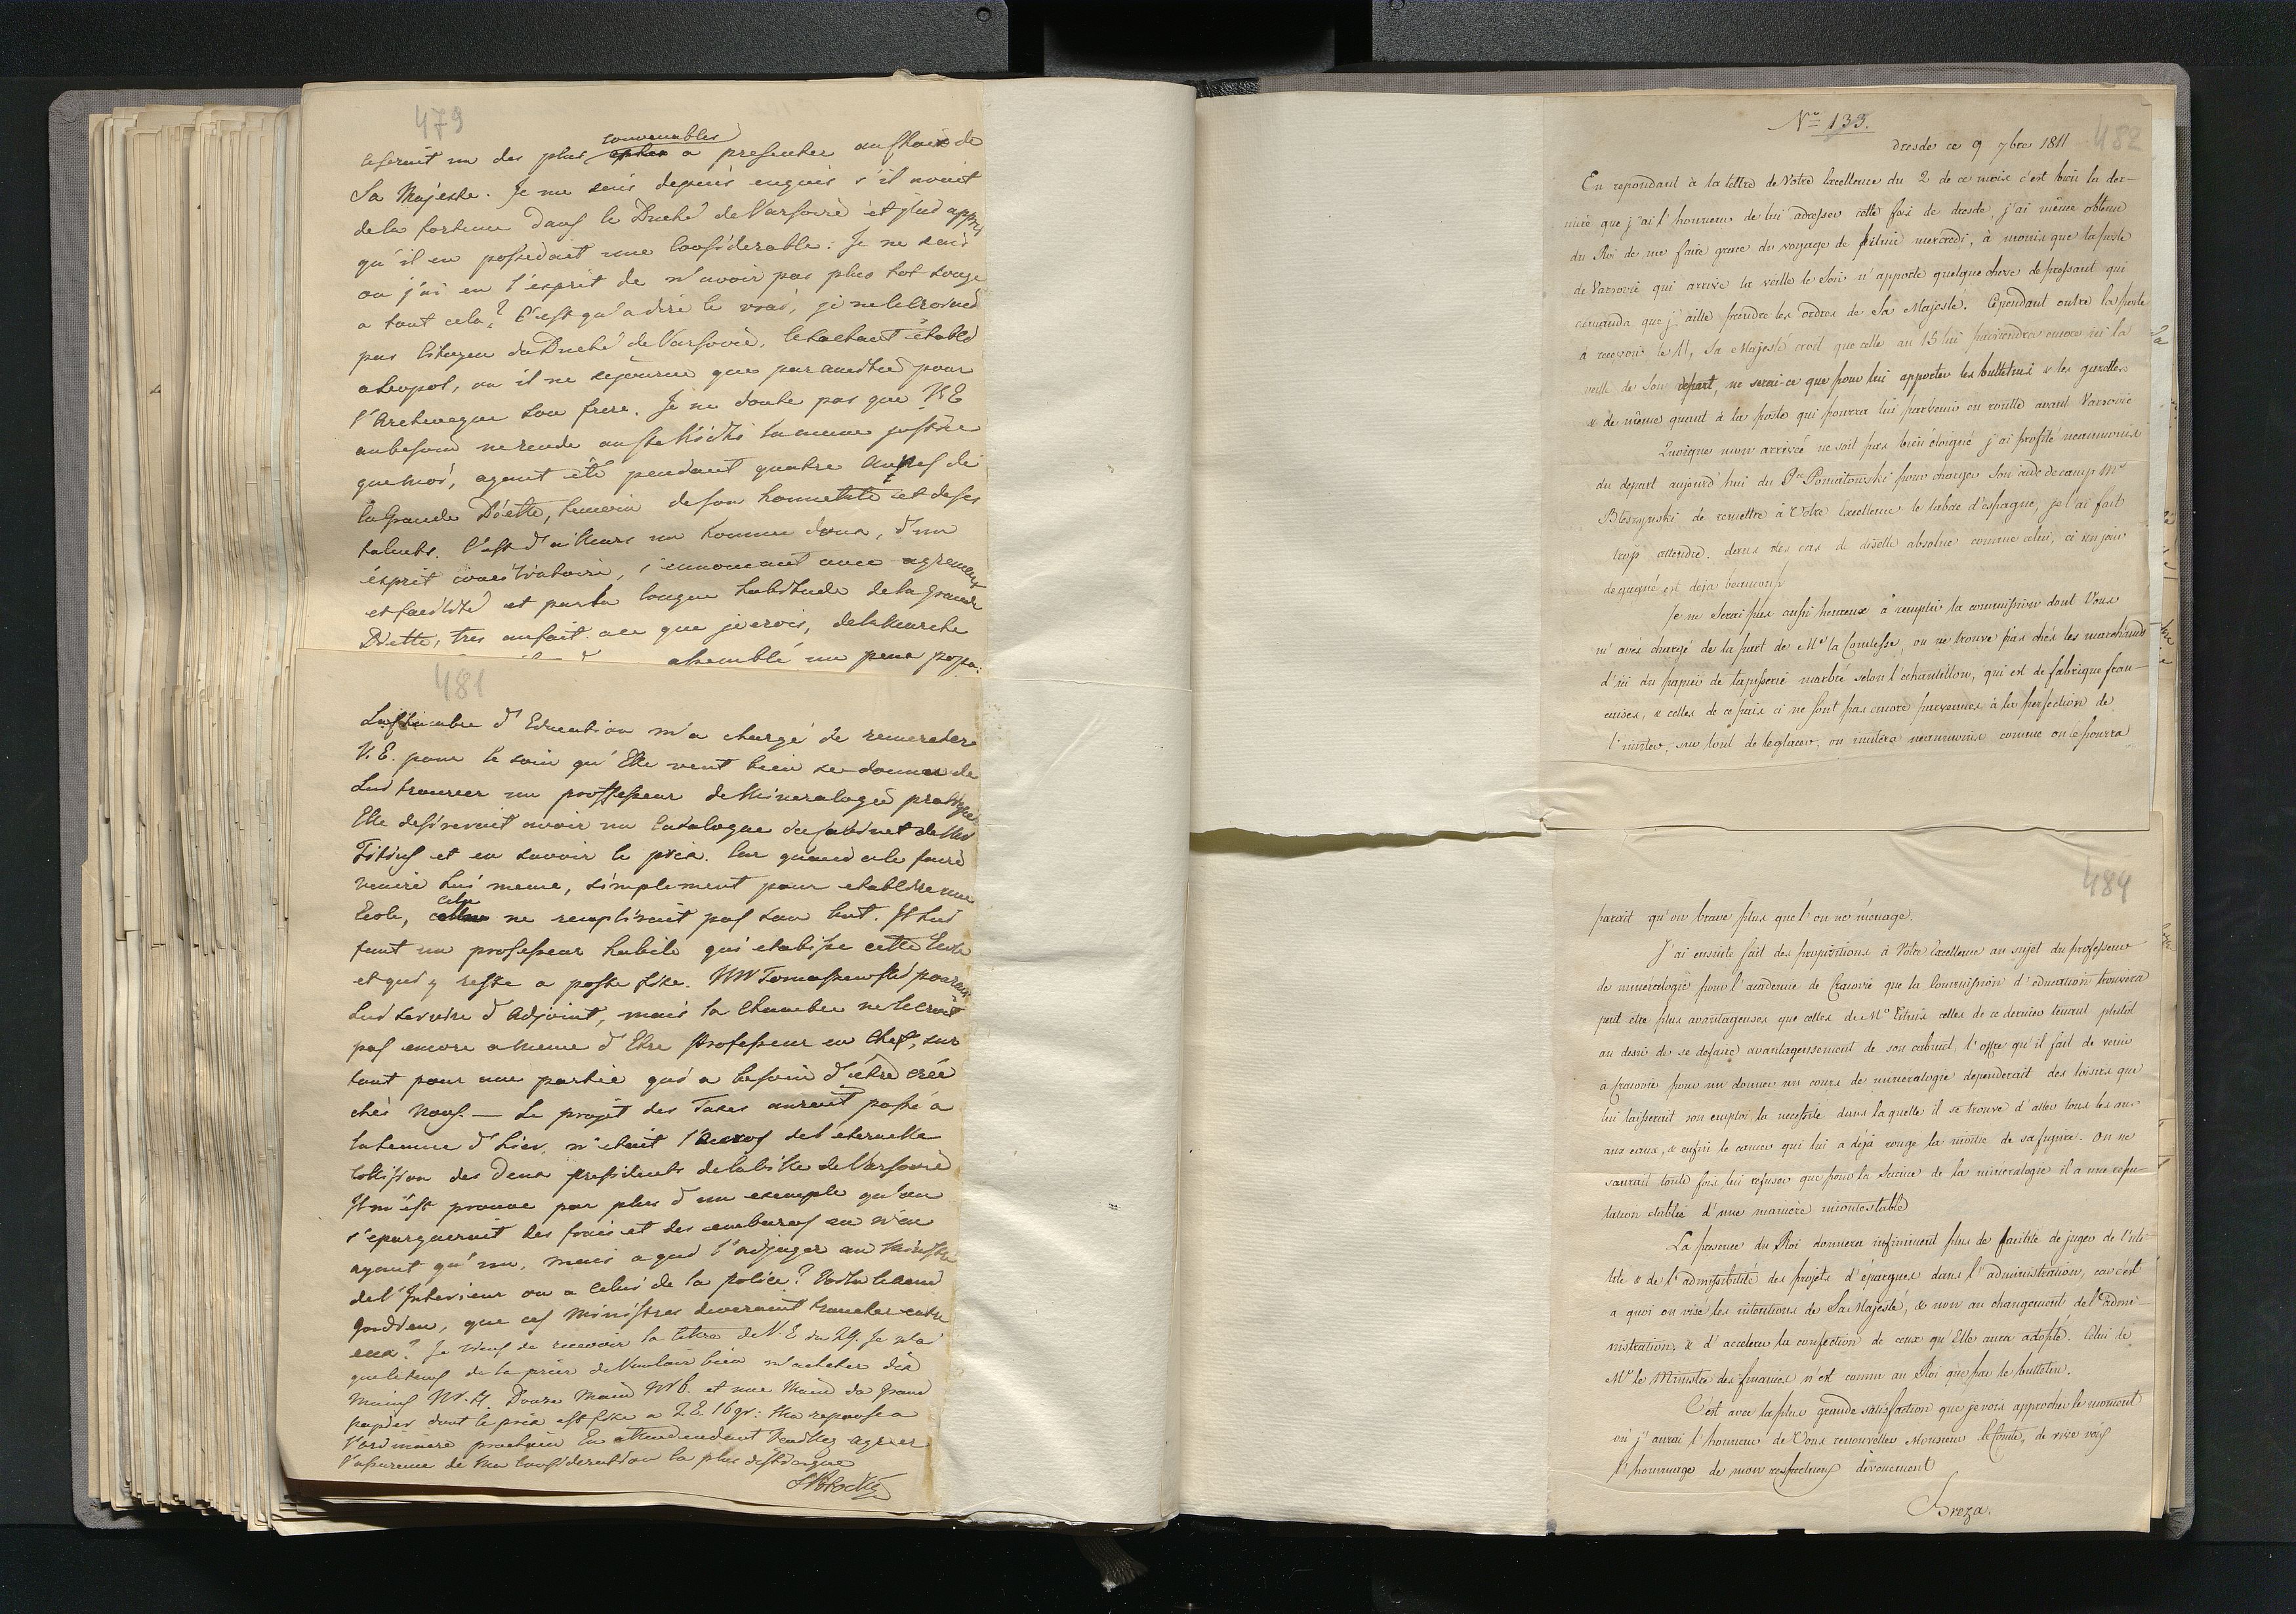 479
ce serait un des plus convenables a presenter au choix de
Sa Majesté. Je me suis depuis enquis s'il avoit
de la fortune dans le Duché de Varsovie et j'ai appris
qu'il en possedait une considerable. Je ne sais
ou j'ai eu l'esprit de n'avoir pas plus tot songé
a tout cela? C'est qu'a dire le vrai, je ne le croiois
pas Citoyen du Duché de Varsovie, le sachant établi
a Leopol, ou il ne sejourne que par amitié pour
l'Archeveque son frere. Je ne doute pas que V.E
au besoin ne rende au
que moi, ayant été pendant quatre années de
la Grande Diette, temoin de son honneteté et de ses
talents. C'est d'ailleurs un homme doux, d'un
esprit conciliatoire, s'ennoncant avec agrement
et facilité et par la longue habitude de la grande
Diette, tres au fait a ce que je crois, de la marche
assemblé un peu
481
La Chambre d'Education m'a chargé de remercier
V.E. pour le soin qu'Elle veut bien se donner de
Lui trouver un professeur de Mineralogie pratique
Elle desirerait avoir un Catalogue du Cabinet de Mr
Titius et en savoir le prix. Car quand a le faire
venir Lui meme, simplement pour etablir une
Ecole, cela ne remplirait pas son but. Il Lui
faut un professeur habile qui etablisse cette Ecole
et qui y reste a poste fixe. Mr Tomaszewski pourrait
Lui servir d'Adjoint, mais la Chambre ne le croit
pas encore a meme d'Etre Professeur en Chef, sur
tout pour une partie qui a besoin d'être crée
chés nous. — Le projet des Taxes auroit passé a
la seance d'hier, n'était l'accroc de l'eternelle
Collision des deux presidents de la Ville de Varsovie
Il m'est prouvé par plus d'un exemple qu'on
s'epargnerait des frais et des embaras en n'en
ayant qu'un, mais a qui l'adjuger au Ministre
de l'Interieur ou a celui de la police? Voila le noeud
gordien, que ces Ministres devroient trancher entre
eux? Je viens de recevoir la lettre de V.E du 29. Je n'ai
que le tems de la prier de Vouloir bien m'acheter dix
Mains Nr. 4. Douze Mains Nr 6. et une Main de grand
papier dont le prix est fixé a 2 E. 16 gr: Ma reponse a
l'ordinaire prochain En attendendant Veuillez agréer
l'assurence de Ma Consideration la plus distinguée
SPotocki
Nro 133.
482
Dresde ce 9 7bre 1811
En repondant à la lettre de Votre Excellence du 2 de ce mois c'est bien la der-
niere que j'ai l'honneur de lui adresser cette fois de Dresde, j'ai même obtenu
du Roi de me faire grace du voyage de Pilnic mercredi, à moins que la poste
de Varsovie qui arrive la veille le soir n'apporte quelque chose de pressant qui
demanda que j'aille prendre les ordres de Sa Majesté. Cependant outre la poste
à recevoir le 11, Sa Majesté croit que celle du 15 lui parviendra encore ici la
veille de Son départ, ne serai-ce que pour lui apporter les bulletins & les gazettes
& de même quant à la poste qui pourra lui parvenir en route avant Varsovie
Quoique mon arrivée ne soit pas bien éloignée j'ai profité neanmoins
du depart aujourd'hui du Pce Poniatowski pour charger Son aide de camp Mr
Bleszynski de remettre à Votre Excellence le tabac d'espagne, je l'ai fait
trop attendre. dans des cas de disette absolue comme celui, ci un jour
de gagné est deja beaucoup
Je ne serai pas aussi heureux à remplir la commission dont Vous
m'avés chargé de la part de Me la Comtesse, on ne trouve pas chés les marchands
d'ici du papier de tapisserie marbré selon l'echantillon, qui est de fabrique fran-
caise, & celles de ce païs ci ne sont pas encore parvenues à la perfection de
l'imiter, sur tout de le glacer, on imitera neanmoins comme on le pourra
484
parait qu'on brave plus que l'on ne menage.
J'ai ensuite fait des propositions à Votre Excellence au sujet du professeur
de mineralogie pour l'academie de Cracovie que la Commission d'education trouvera
peut etre plus avantageuses que celles de Mr Titius celles de ce dernier tenant plutôt
au desir de se defaire avantageusement de son cabinet, l'offre qu'il fait de venir
a Cracovie pour nn donner un cours de mineralogie dependerait des loisirs que
lui laisserait son emploi, la necessité dans laquelle il se trouve d'aller tous les ans
aux eaux, & enfin le cancer qui lui a déjà rongé la moitié de sa figure. On ne
saurait toute fois lui refuser que pour la Science de la mineralogie il a une repu-
tation etablie d'une manière incontestable
La presence du Roi donnera infiniment plus de facilité de juger de l'uti-
lité & de l'admissibilité des projets d'épargnes dans l'administration, car c'est
a quoi on vise les intentions de Sa Majesté, & non au changement de l'admi-
nistration, & d'accelerer la confection de ceux qu'Elle aura adopté. Celui de
Mr le Ministre des finances n'est connu au Roi que par le bulletin.
C'est avec la plus grande satisfaction que je vois approcher le moment
où j'aurai l'honneur de Vous renouveller Monsieur le Comte, de vive voix
l'hommage de mon respectueux dévouement
Breza.